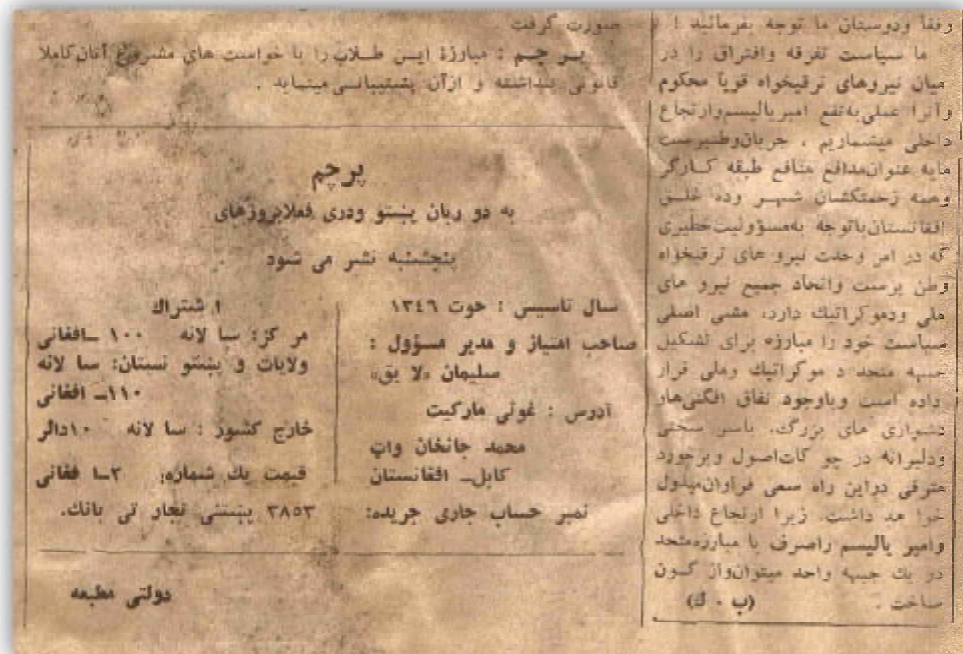 رفقا ودوستان ما توجه بفرمائید !
ما سیاست تفرقه وافتراق را در
میان نیروهای ترقیخواه قویاً محکوم
وآنرا عملی به نفع امپریالیسم وارتجاع
داخلی میشماریم . جریان وطنپرست
مابه عنوان مدافع منافع طبقه کارگر
وهمه زحمتکشان شهر وده خلق
افغانستان باتوجه به مسؤولیت خطیری
که در امر وحدت نیرو های ترقیخواه
وطن پرست واتحاد جمیع نیرو های
ملی ودموکراتیك دارد، مشی اصلی
سیاست خود را مبارزه برای تشکیل
جبهه متحد د موکراتیك وملی قرار
داده است وباوجود نفاق افگنی ها و
دشواری های بزرگ، باسر سختی
ودلیرانه در چو کات اصول وپرچورد
مترقی دراین راه سعی فراوان مبذول
خوا هد داشت. زیرا ارتجاع داخلی
وامپر یالیسم راصرف با مبارزه متحد
در یك جبهه واحد میتوان واژ گون
ساخت .
(ب . ك)
صورت گرفت
پر چم : مبارزهٔ این طلاب را با خواست های مشروع آنان کاملا
قانونی پنداشته و ازآن پشتیبانی مینماید .
پرچم
به دو زبان پښتو ودری فعلابروزهای
پنجشنبه نشر می شود
سال تاسیس : حوت ١٣٤٦
صاحب امتیاز و مدیر مسؤول :
سلیمان «لا یق»
آدرس : غوثی مارکیت
محمد جانخان وات
کابل‌ـ افغانستان
ا شتراك
مر کز: سا لانه ١٠٠ ـافغانی
ولایات و پښتو نستان: سا لانه
١١٠ـ افغانی
خارج کشور : سا لانه ١٠دالر
قیمت یك شماره: ٢ـا فغانی
نمبر حساب جاری جریده: ٣٨٥٣ پښتنی تجار تی بانك.
دولتی مطبعه